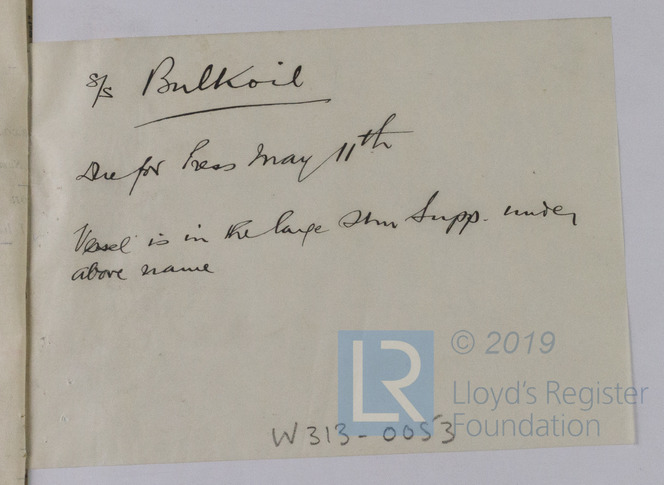 S/S Bulkoil
Due for Press May 11th
Vessel is in the large Stm Supp. under
above name
LR
© 2019
Lloyd's Register
Foundation
W313-0053